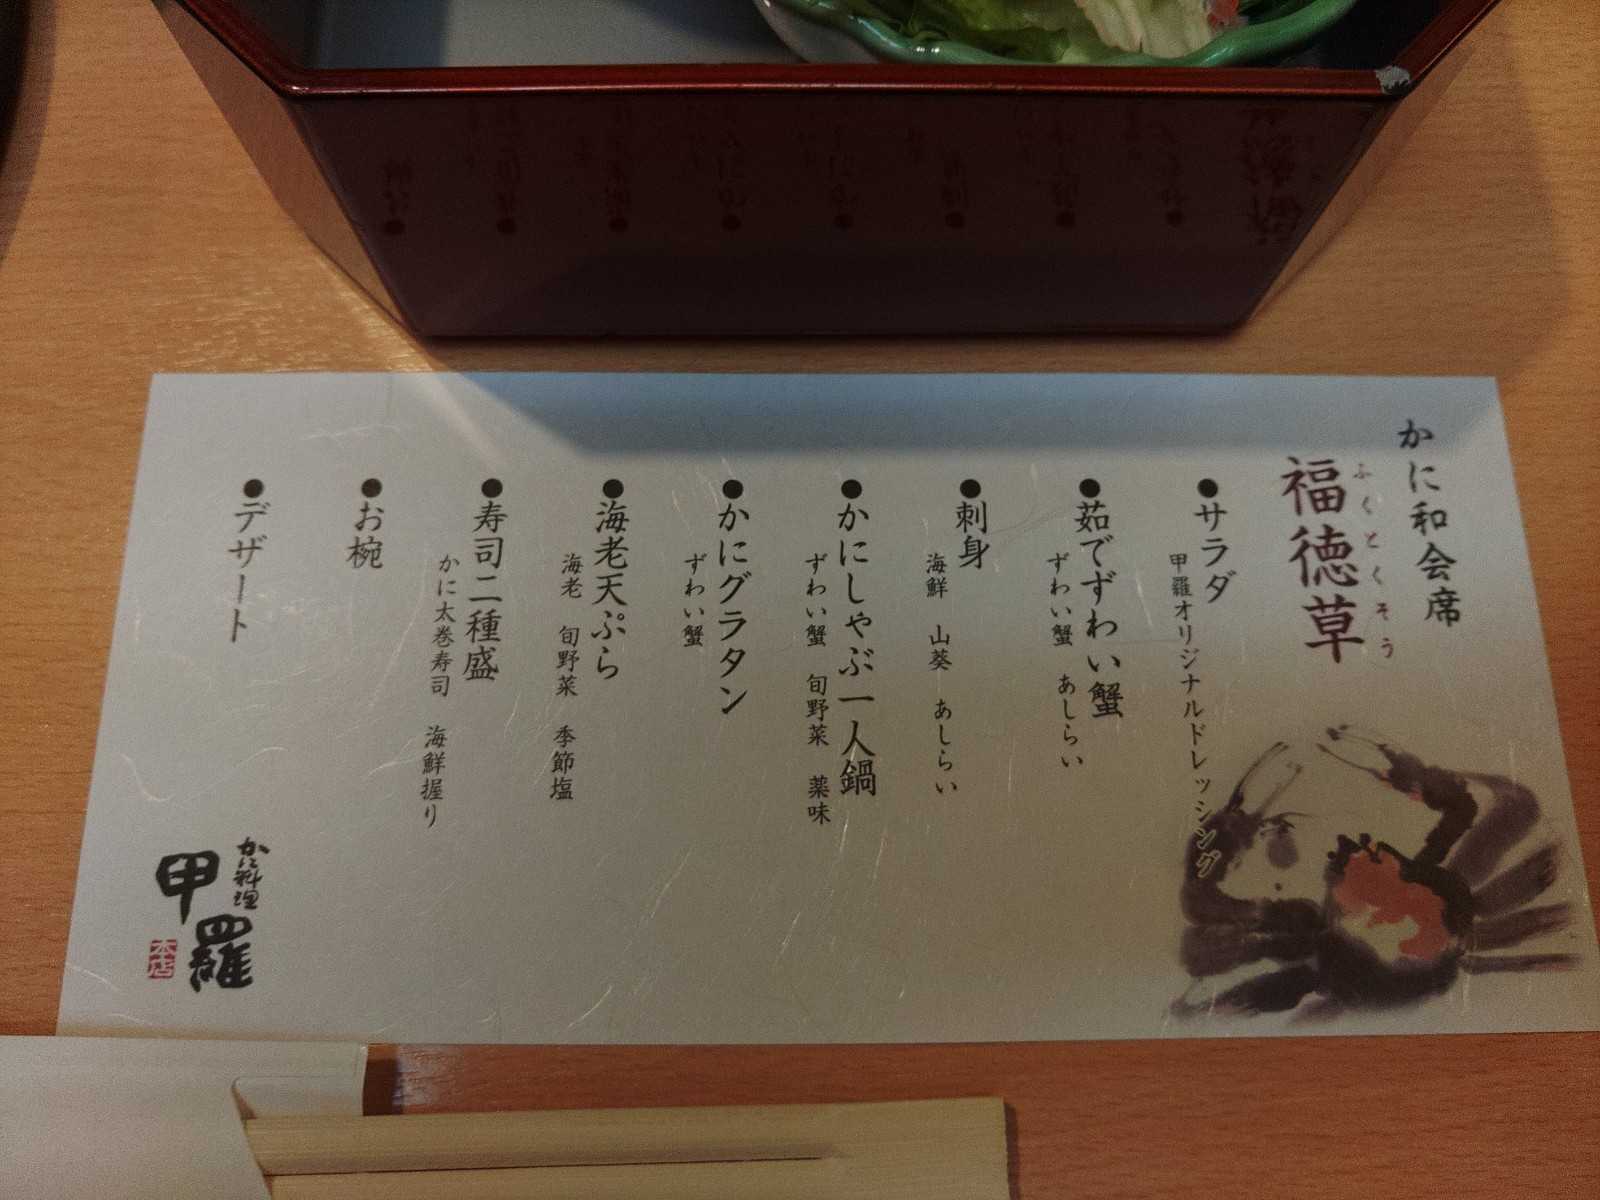 かに和会席
福徳草
ふくとくそう
●サラダ
甲羅オリジナルドレッシング
●茹でずわい蟹
ずわい蟹 あしらい
●刺身
海鮮 山葵 あしらい
●かにしゃぶ一人鍋
ずわい蟹 旬野菜 薬味
●かにグラタン
ずわい蟹
●海老天ぷら
海老 旬野菜 季節塩
●寿司二種盛
かに太巻寿司 海鮮握り
●お椀
●デザート
かに料理
甲羅
本店